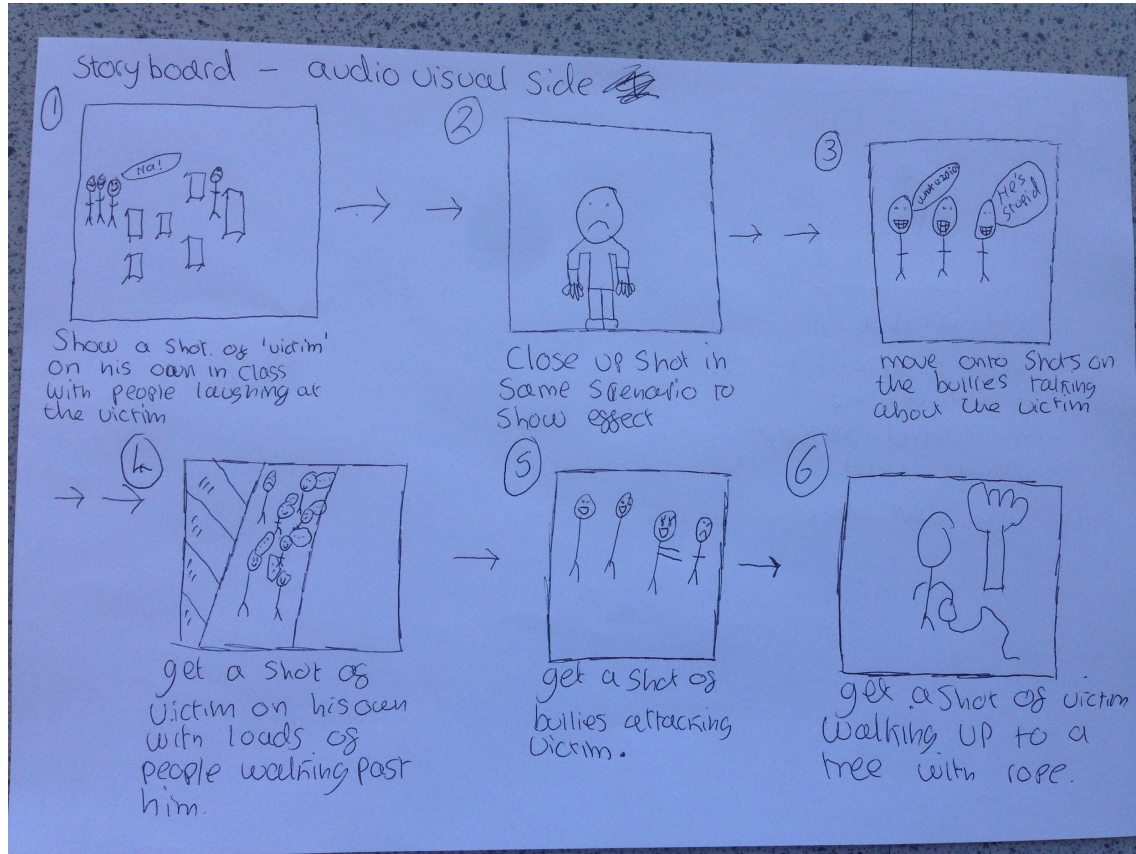 Storyboard - audio visual side
1
Ha!
Show a shot of 'victim'
on his own in class
with people laughing at
the victim
2
Close up shot in
Same Scenario to
Show effect
3
He's
stupid
move onto shots on
the bullies talking
about the victim
4
get a shot of
victim on his own
with loads of
people walking past
him.
5
get a shot of
bullies attacking
victim.
6
get a shot of victim
walking up to a
tree with rope.